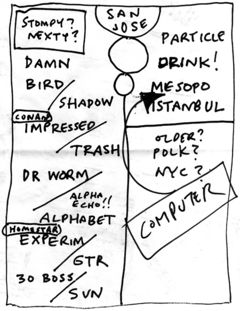 STOMPY?
NEXTY?
DAMN
BIRD
SHADOW
CONAN
IMPRESSED
TRASH
DR WORM
ALPHA
ECHO!!
ALPHABET
HOMESTAR
EXPERIM
GTR
30 BOSS
SUN
SAN
JOSE
PARTICLE
DRINK!
MESOPO
ISTANBUL
OLDER?
POLK?
NYC?
COMPUTER